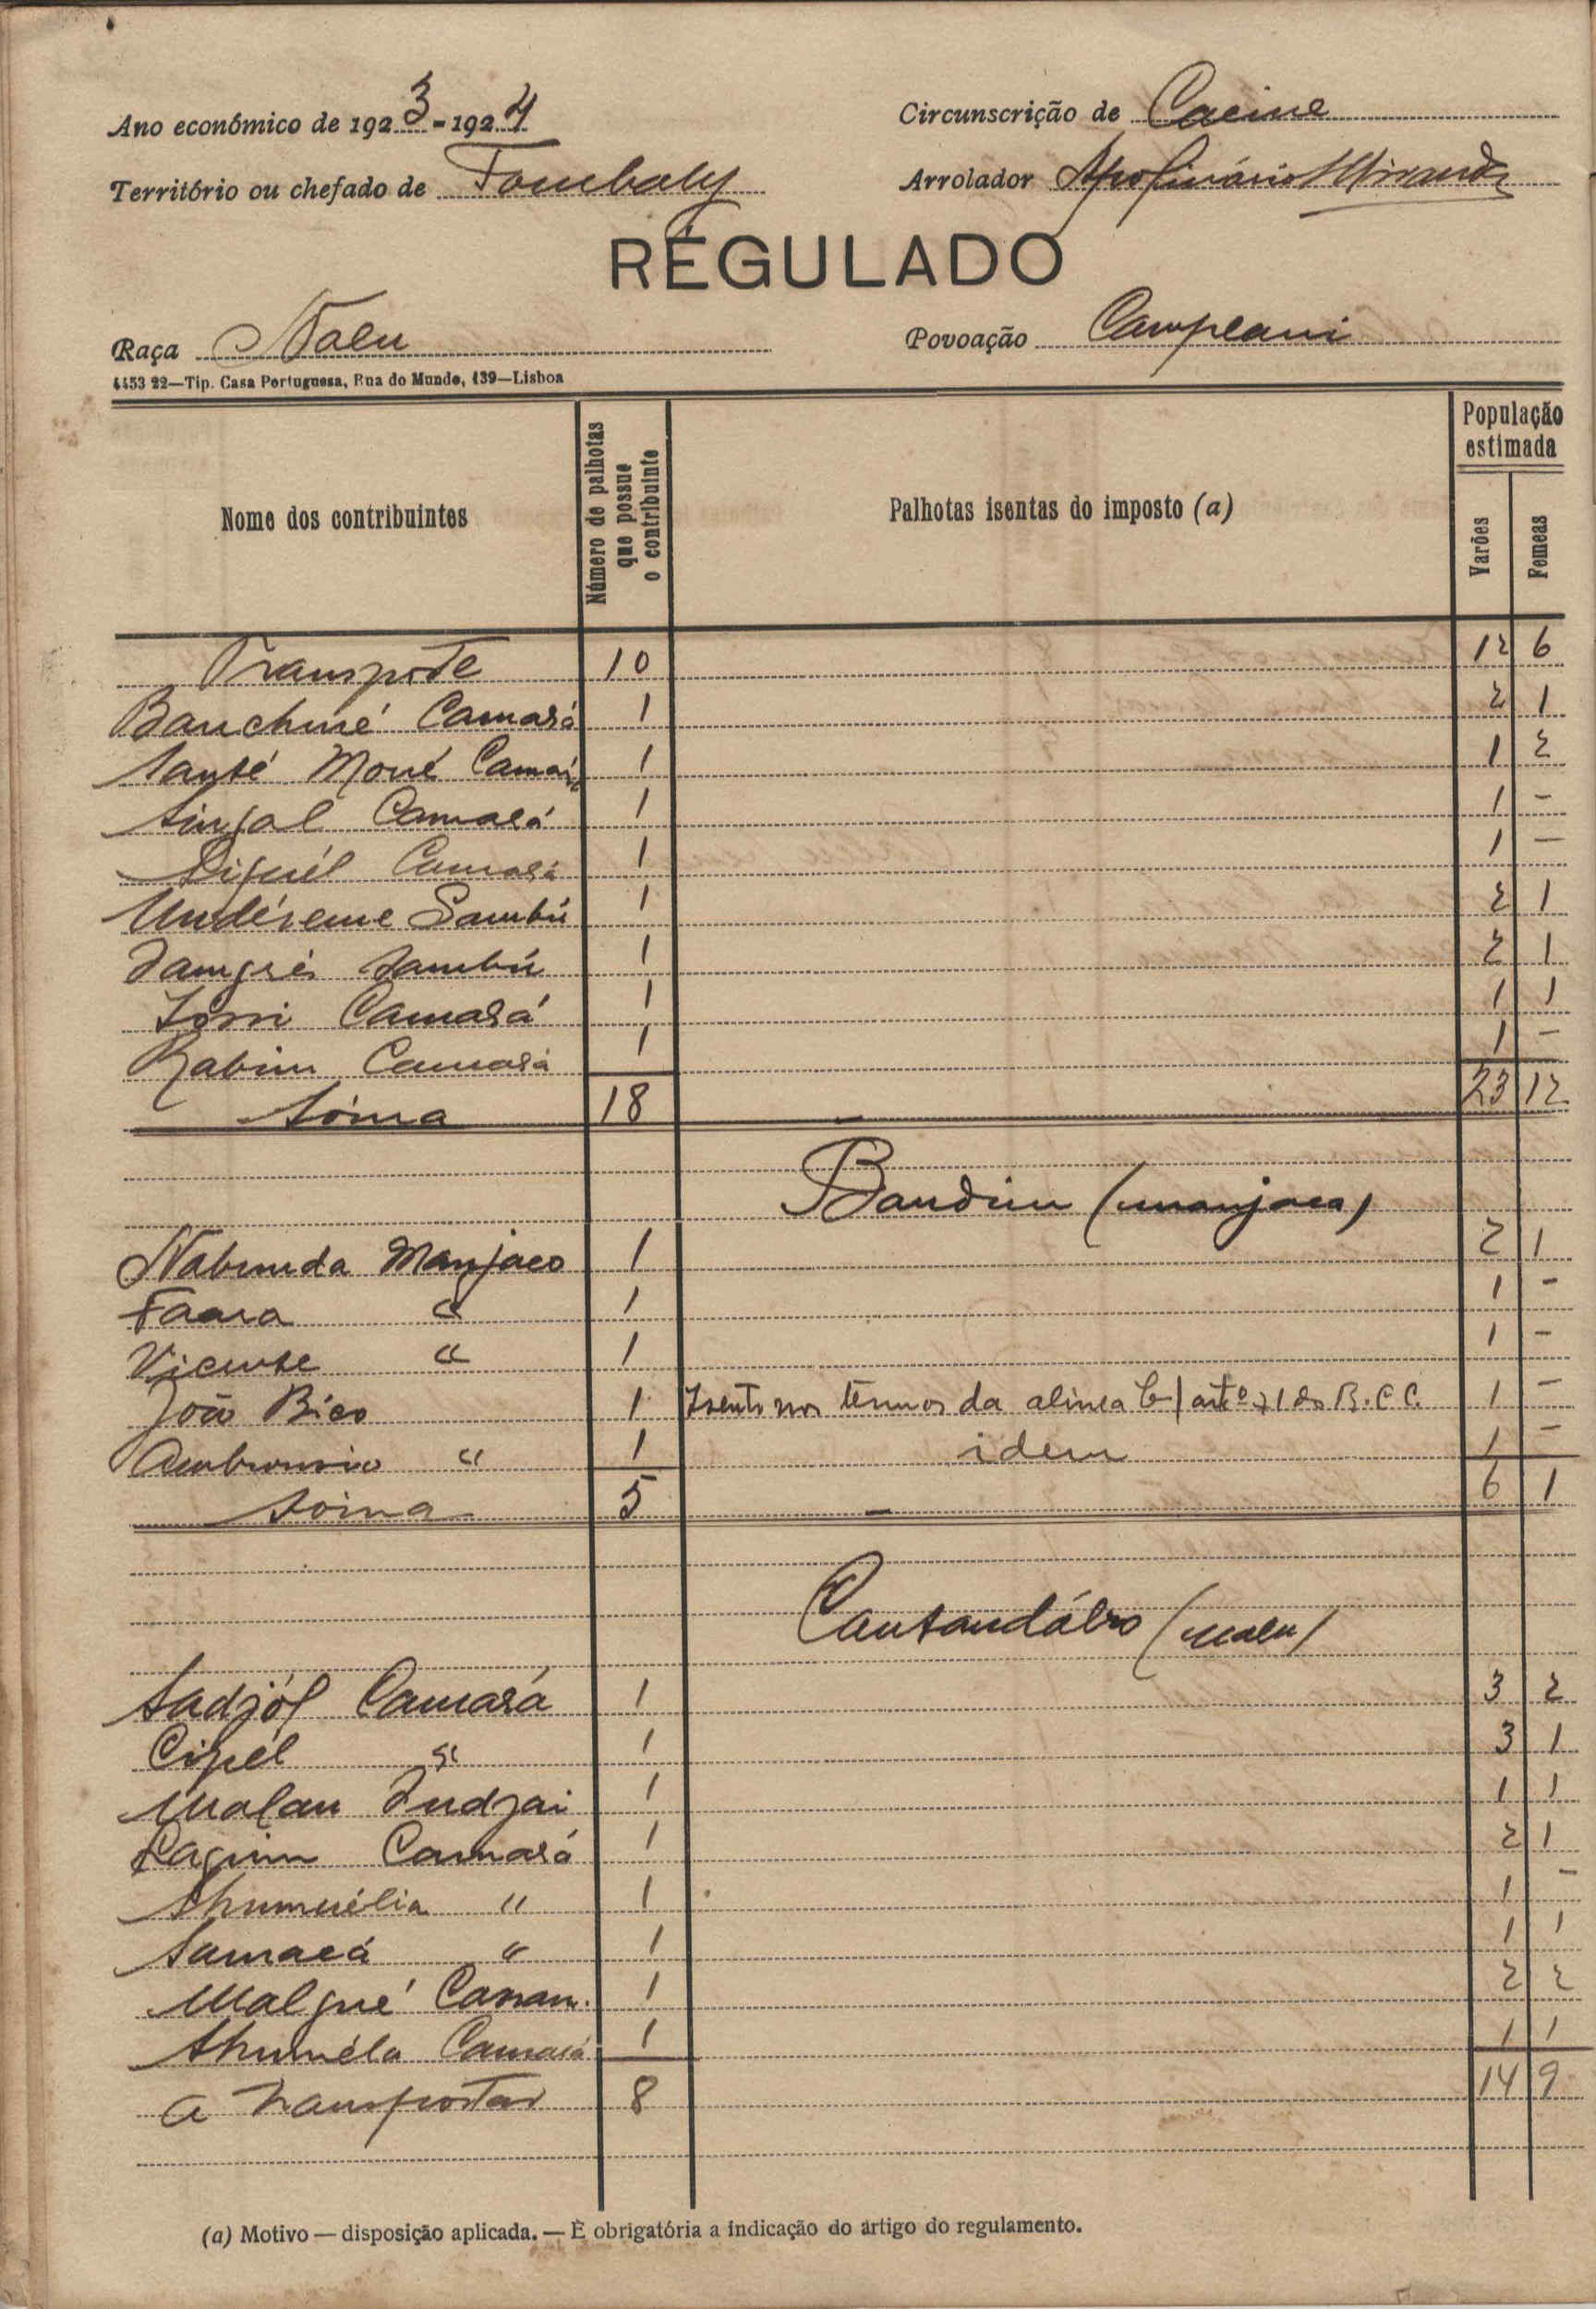 Ano económico de 1923-1924
Circunscrição de Cacine
Território ou chefado de Tombaly
Arrolador Apolinário Miranda
REGULADO
Raça Nalu
Povoação Campeani
4453 22—Tip. Casa Portuguesa, Rua do Mundo, 139—Lisboa
Nome dos contribuintes
Número de palhotas que possue o contribuinte
Palhotas isentas do imposto (a)
População estimada
Varões
Femeas
Transporte 10 12 6
Camará 1 2 1
Santé Moné Camará 1 1 2
Camará 1 1 -
Camará 1 1 -
Sambú 1 2 1
Sambú 1 2 1
Camará 1 1 1
Camará 1 1 -
Sôma 18 — 23 12
Bandim (manjaca)
Nabunda Manjaco 1 2 1
Faara " 1 1 -
Vicente " 1 1 -
João Bico 1 Isento nos termos da alinea b/ artº 71 do R.C.C. 1 -
Ambrousio " 1 idem 1 -
Sôma 5 — 6 1
(nalu)
Sadjól Camará 1 3 2
Cipél " 1 3 1
Malan Indjai 1 1 1
Camará 1 2 1
" 1 1 -
" 1 1 1
Malgué Camar. 1 2 2
Camará 1 1 1
A transportar 8 14 9
(a) Motivo — disposição aplicada. — É obrigatória a indicação do artigo do regulamento.